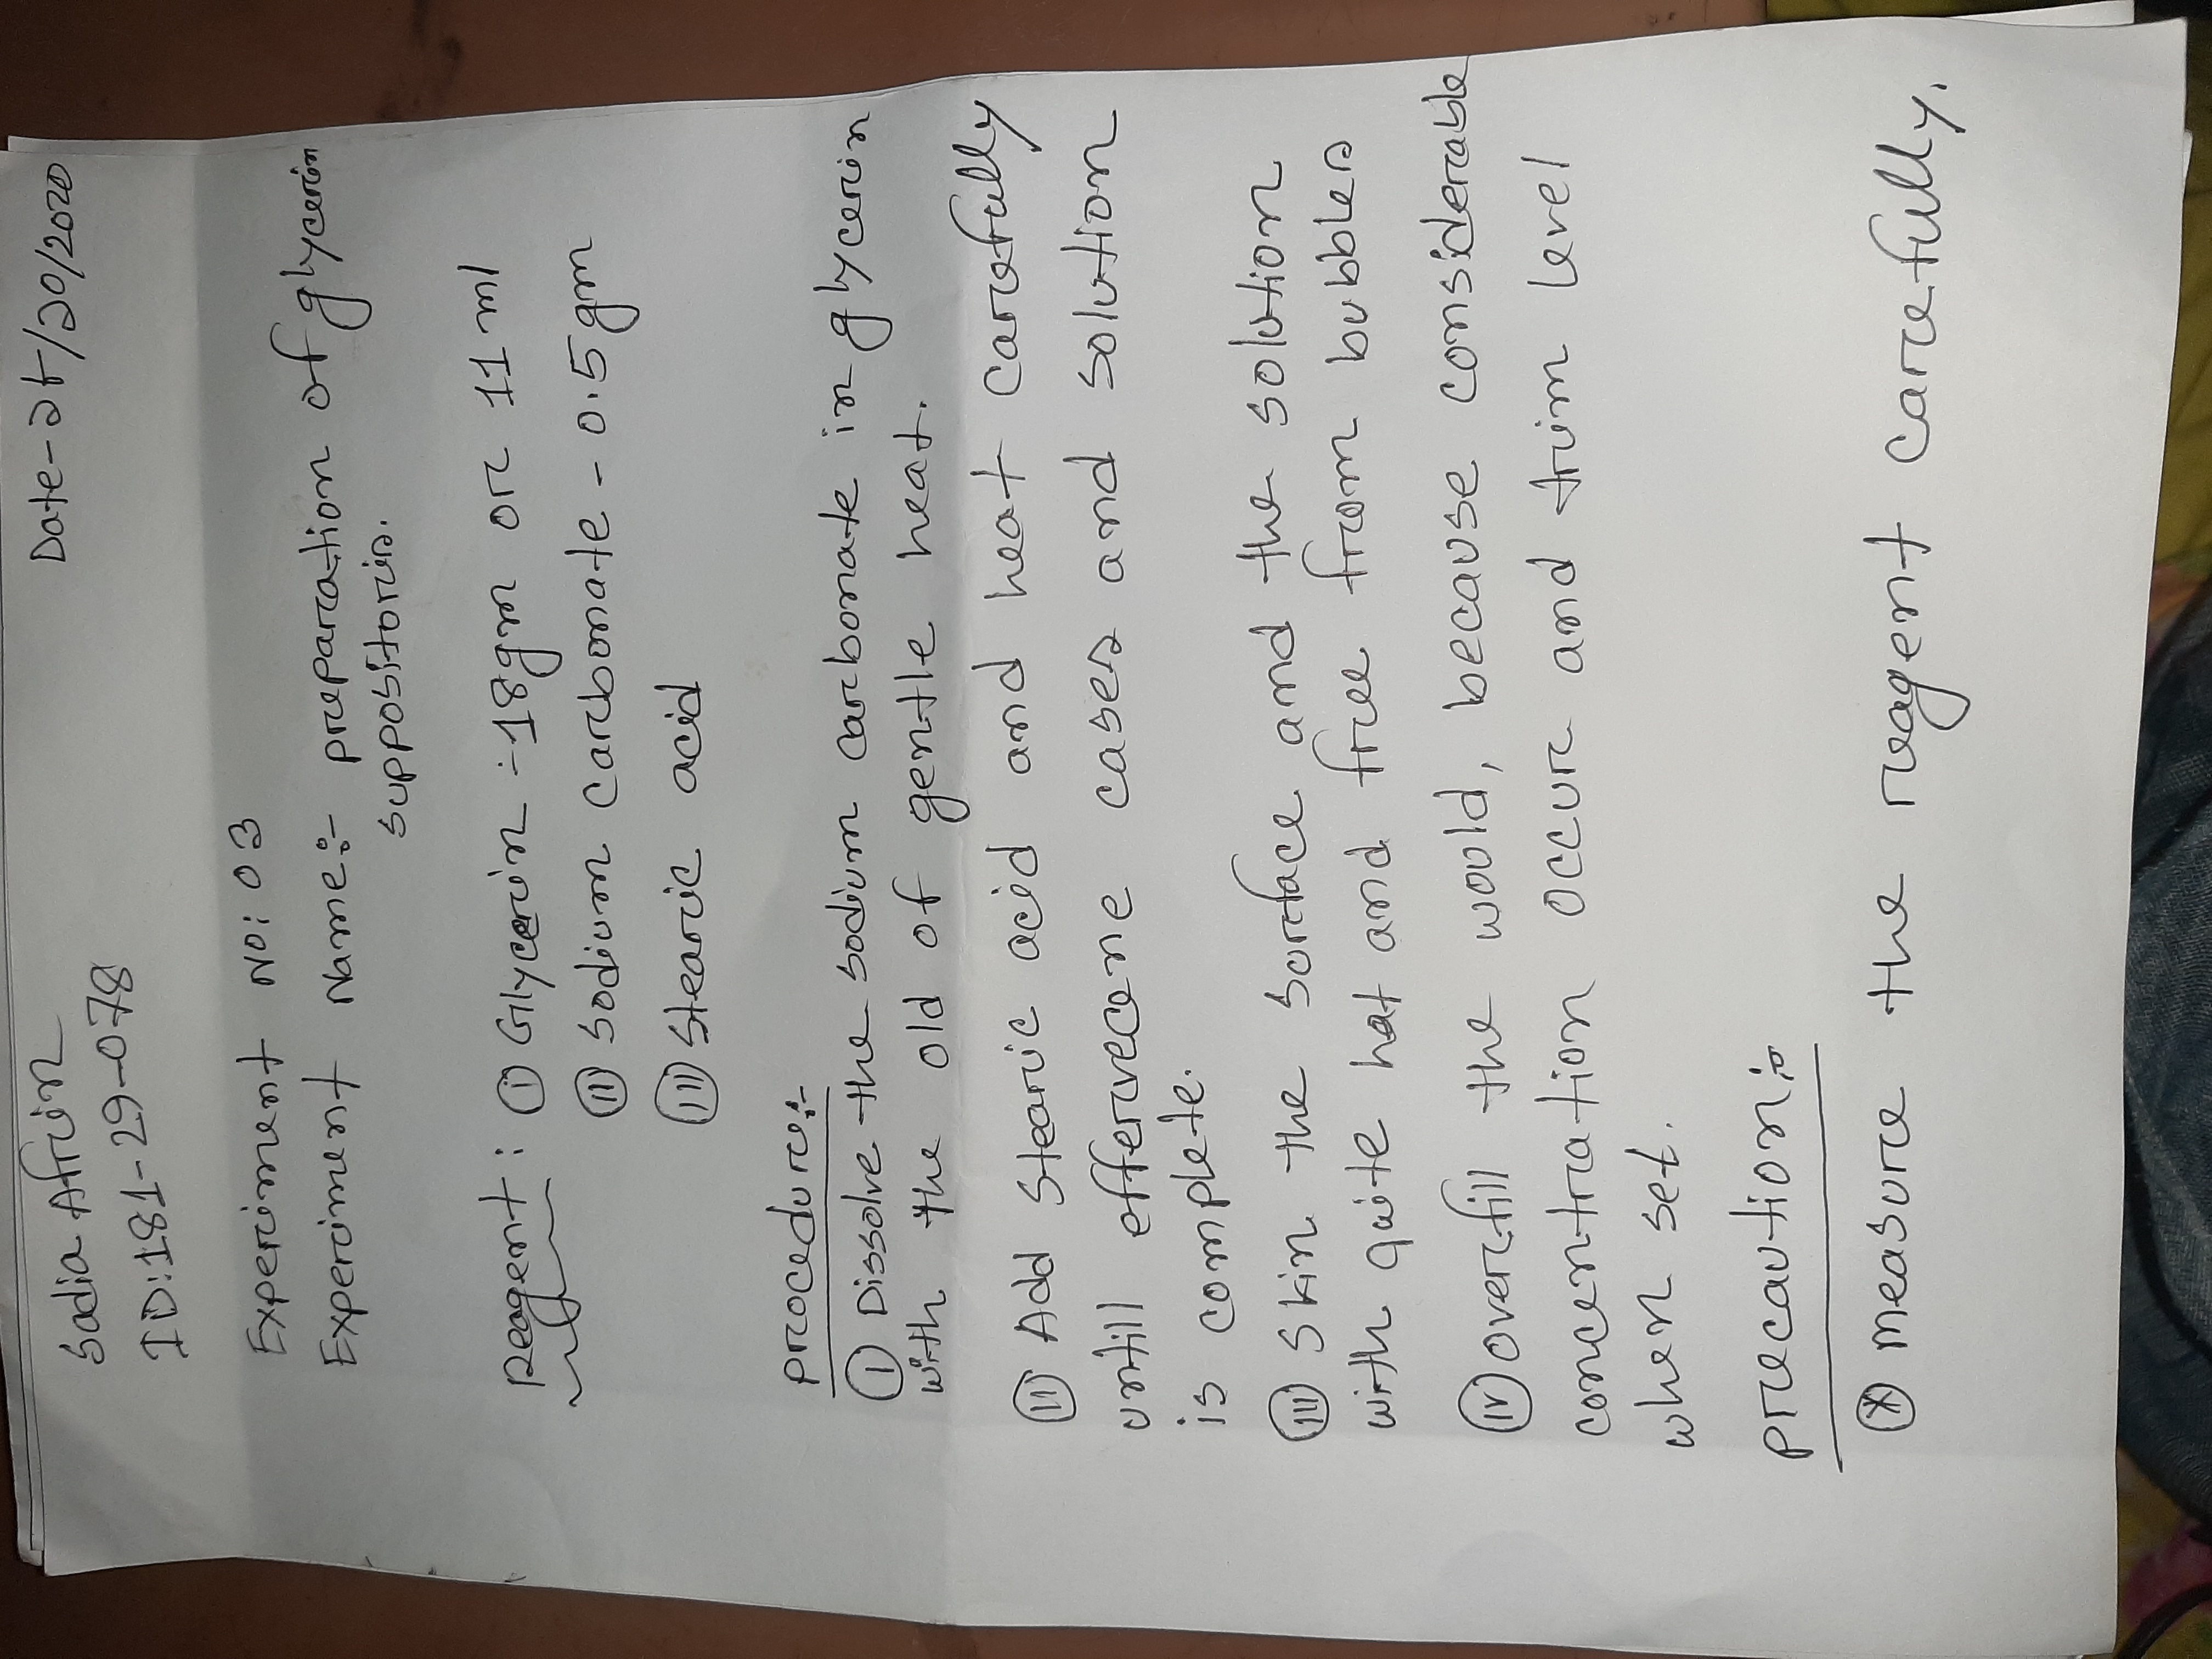 Sadia Afrin
Date-
ID:181-29-078
Experiment No: 03
Experiment Name:- preparation of glycerin
suppositoris.
Reagent: (i) Glycerin -18gm or 11 ml
(ii) Sodium carbonate - 0.5 gm
(iii) Stearic acid
procedure:-
(i) Dissolve the sodium carbonate in glycerin
with the old of gentle heat.
(ii) Add stearic acid and heat carefully
untill effervecene cases and solution
is complete.
(iii) Skin the surface and the solution
with quite hot and free from bubbles
(iv) overfill the would, because considerable
concentration occur and trim level
when set.
precaution:-
(*) measure the reagent carefully.